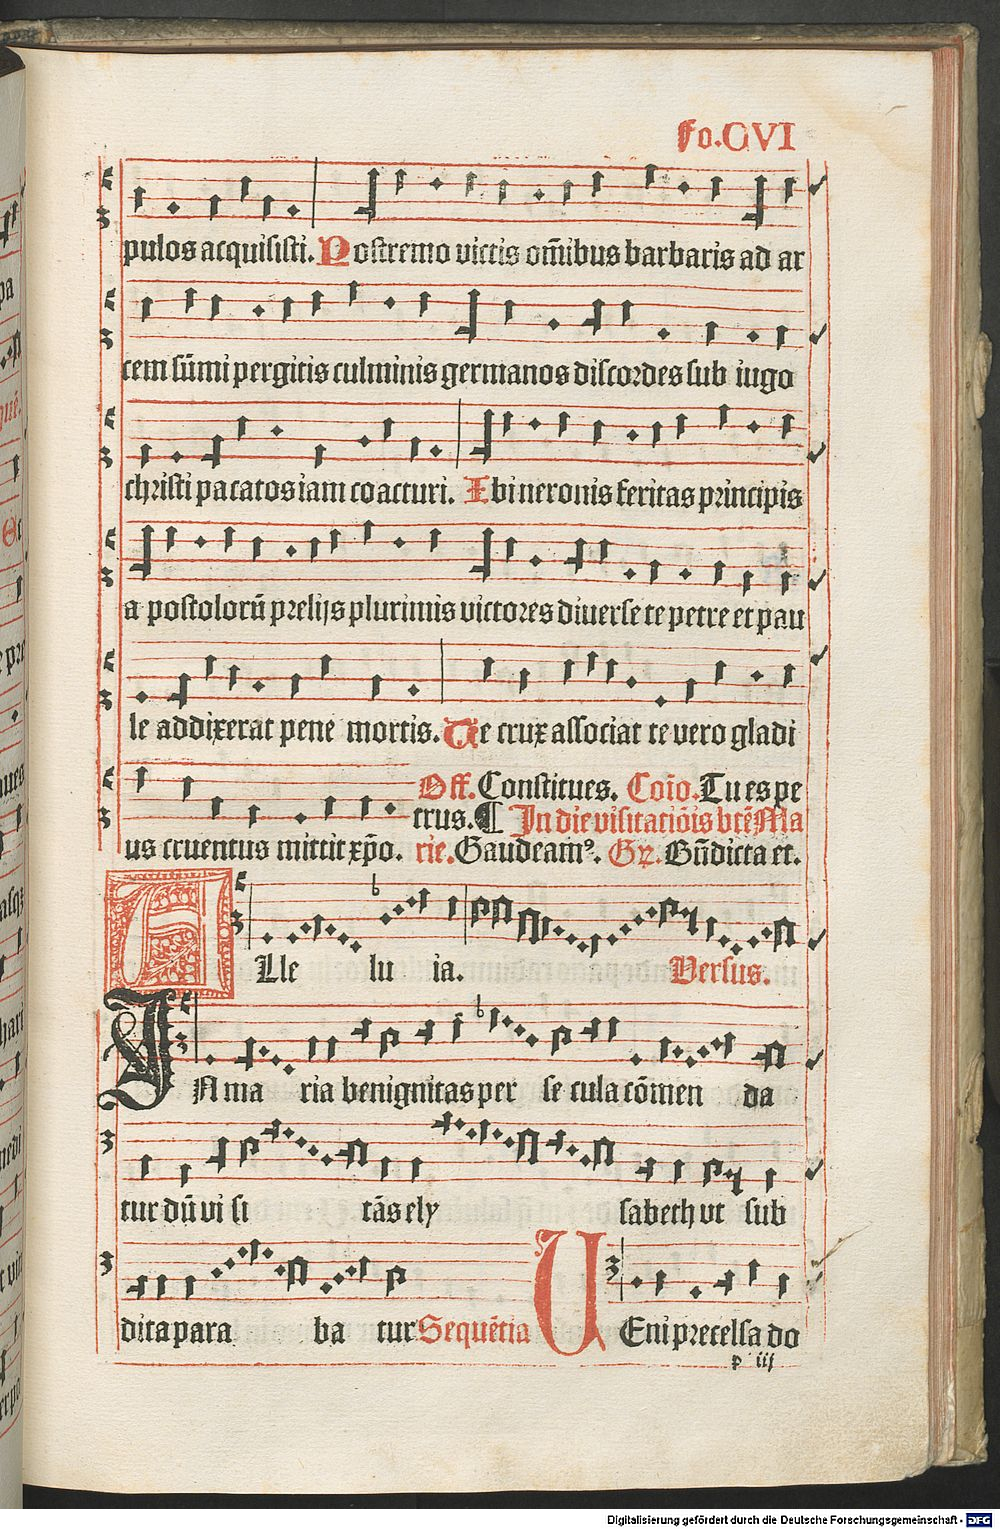 fo.CVI
pulos acquisisti. Postremo victis om̄ibus barbaris ad ar
cem sūmi pergitis culminis germanos discordes sub iugo
christi pacatos iam coacturi. Ibi neronis feritas principis
apostolorū prelijs plurimis victores diverse te petre et pau
le addixerat pene mortis. Te crux associat te vero gladi
Off. Constitues. Coīo. Tu es pe
trus. ¶ In die visitatiōis btē Ma
us cruentus mittit xp̄o. rie. Gaudeamꝰ. Gr. Bn̄dicta et.
ALle lu ia. Versus.
IN ma ria benignitas per se cula cōmen da
tur dū visi tās ely sabeth ut sub
dita para ba tur Sequētia VEni precelsa do
p iij
Digitalisierung gefördert durch die Deutsche Forschungsgemeinschaft - DFG